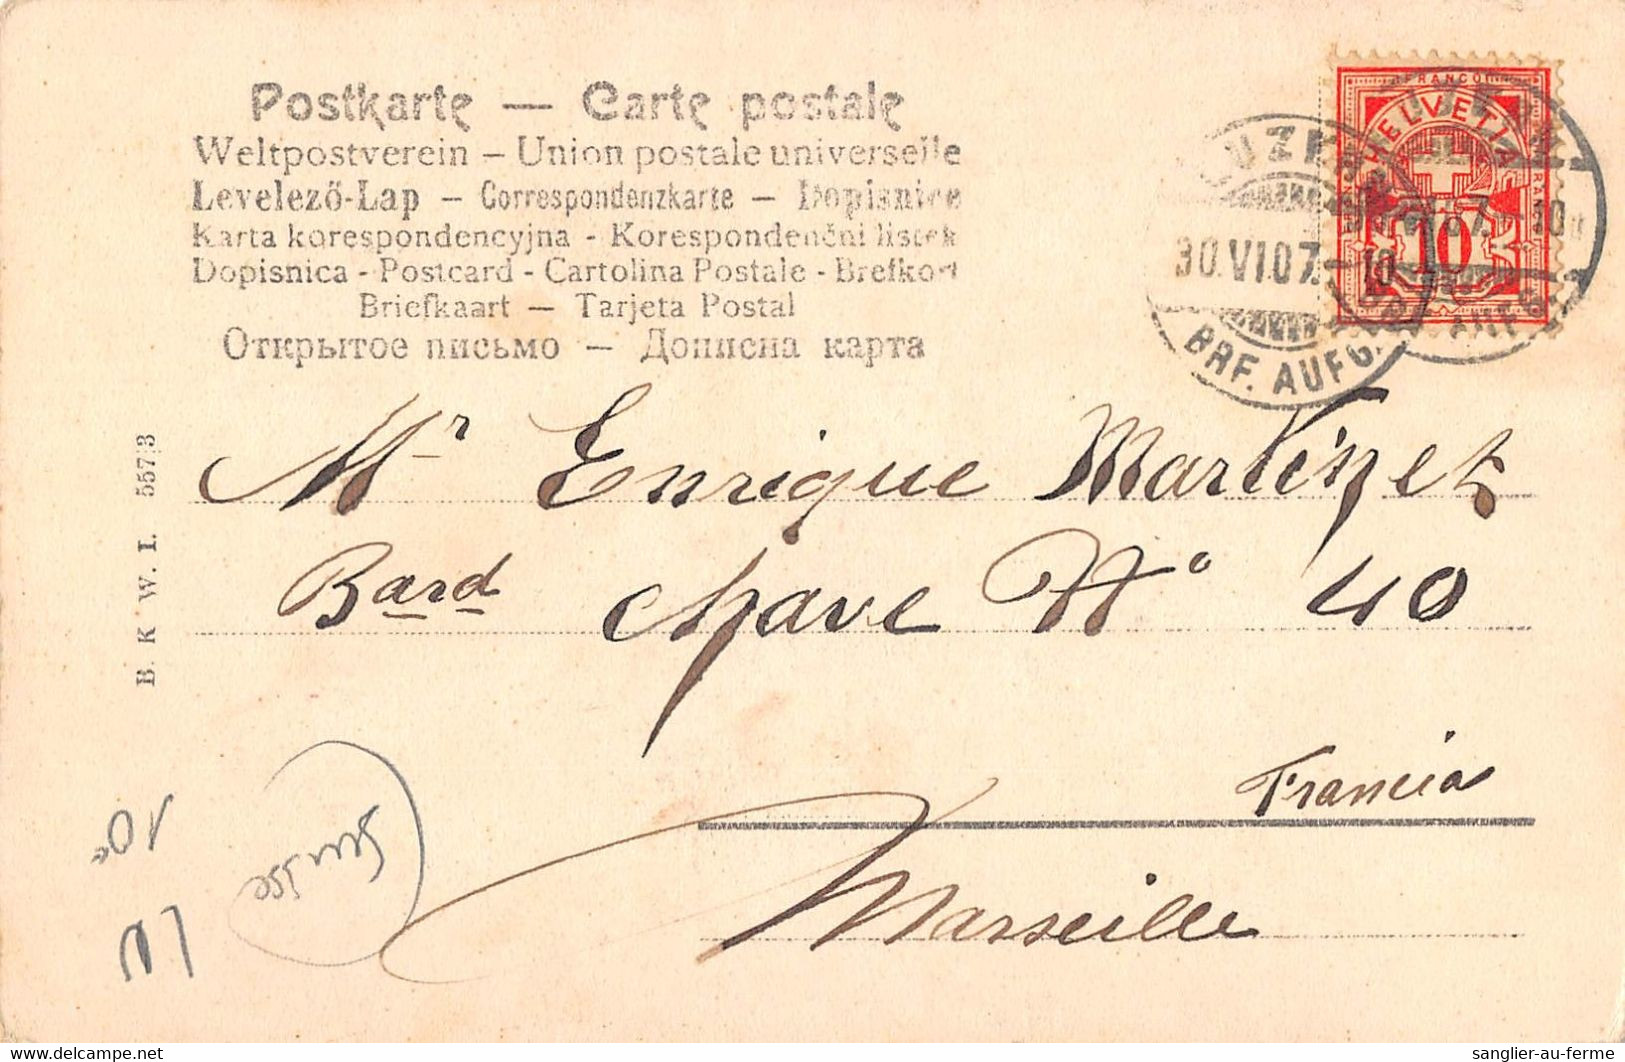 Postkarte — Carte postale
Weltpostverein – Union postale universelle
Levelező-Lap – Correspondenzkarte – Dopisnice
Karta korespondencyjna - Korespondenčni listek
Dopisnica - Postcard - Cartolina Postale - Brefkort
Briefkaart — Tarjeta Postal
Открытое письмо — Дописна карта
FRANCO
HELVETIA
10
30.VI.07.–10
BRF. AUFG.
B. K. W. I. 557/3
Mr Enrique Martinez
Bard Chave No 40
Francia
Marseille
Suisse
10e
sanglier-au-ferme